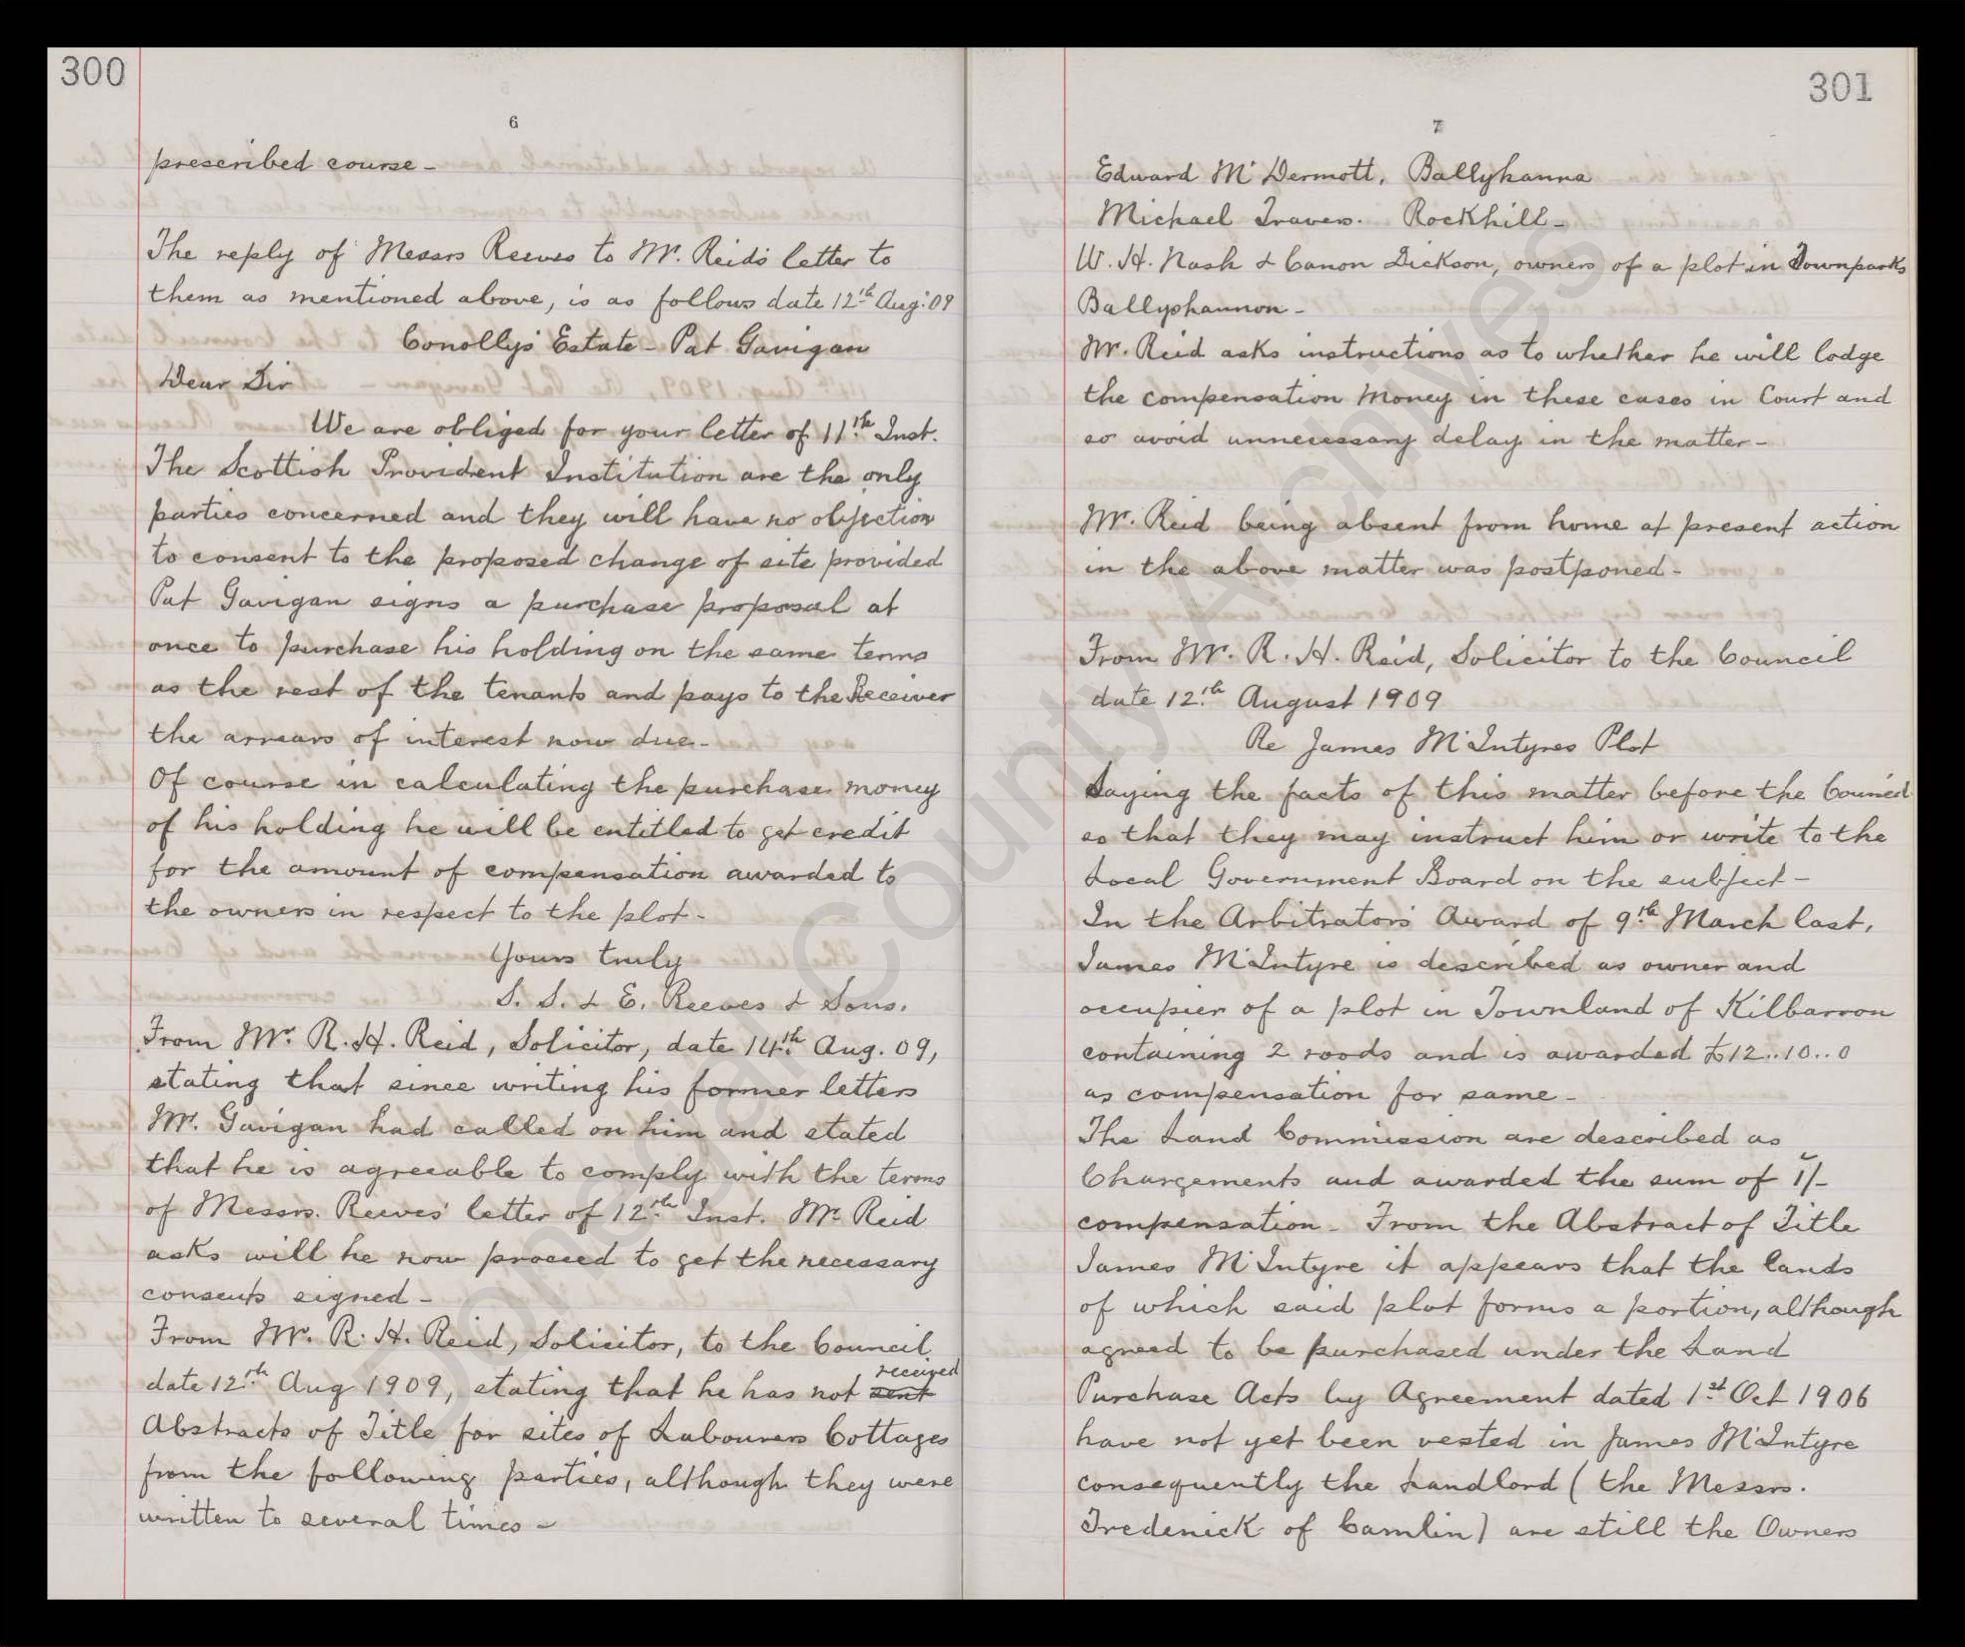 300
6
prescribed course -
The reply of Messrs Reeves to Mr. Reid's letter to
them as mentioned above, is as follows date 12th Aug: 09
Conollys Estate - Pat Gavigan
Dear Sir
We are obliged for your letter of 11th Inst.
The Scottish Provident Institution are the only
parties concerned and they will have no objection
to consent to the proposed change of site provided
Pat Gavigan signs a purchase proposal at
once to purchase his holding on the same terms
as the rest of the tenants and pays to the Receiver
the arrears of interest now due -
Of course in calculating the purchase money
of his holding he will be entitled to get credit
for the amount of compensation awarded to
the owners in respect to the plot -
Yours truly
S. S. & E. Reeves & Sons.
From Mr. R. H. Reid, Solicitor, date 14th Aug. 09,
stating that since writing his former letters
Mr. Gavigan had called on him and stated
that he is agreeable to comply with the terms
of Messrs. Reeves' letter of 12th Inst. Mr Reid
asks will he now proceed to get the necessary
consents signed -
From Mr. R. H. Reid, Solicitor, to the Council
received
date 12th Aug 1909, stating that he has not sent
Abstracts of Title for sites of Labourers Cottages
from the following parties, although they were
written to several times -
301
7
Edward McDermott, Ballyhanna
Michael Travers. Rockhill -
W. H. Nash & Canon Dickson, owners of a plot in Townparks
Ballyshannon -
Mr. Reid asks instructions as to whether he will lodge
the compensation money in these cases in Court and
so avoid unnecessary delay in the matter -
Mr. Reid being absent from home at present action
in the above matter was postponed -
From Mr. R. H. Reid, Solicitor to the Council
date 12th August 1909
Re James McIntyres Plot
Laying the facts of this matter before the Council
so that they may instruct him or write to the
Local Government Board on the subject -
In the Arbitrators' Award of 9th March last,
James McIntyre is described as owner and
occupier of a plot in Townland of Kilbarron
containing 2 roods and is awarded £12..10..0
as compensation for same -
The Land Commission are described as
Chargements and awarded the sum of 1/-
compensation - From the Abstract of Title
James McIntyre it appears that the lands
of which said plot forms a portion, although
agreed to be purchased under the Land
Purchase Acts by Agreement dated 1st Oct 1906
have not yet been vested in James McIntyre
consequently the Landlord (the Messrs.
Tredenick of Camlin) are still the Owners
Donegal County Archives